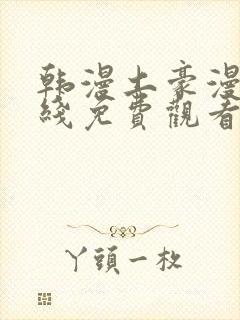 韩漫土豪漫
綫免費觀看
丫頭一枚